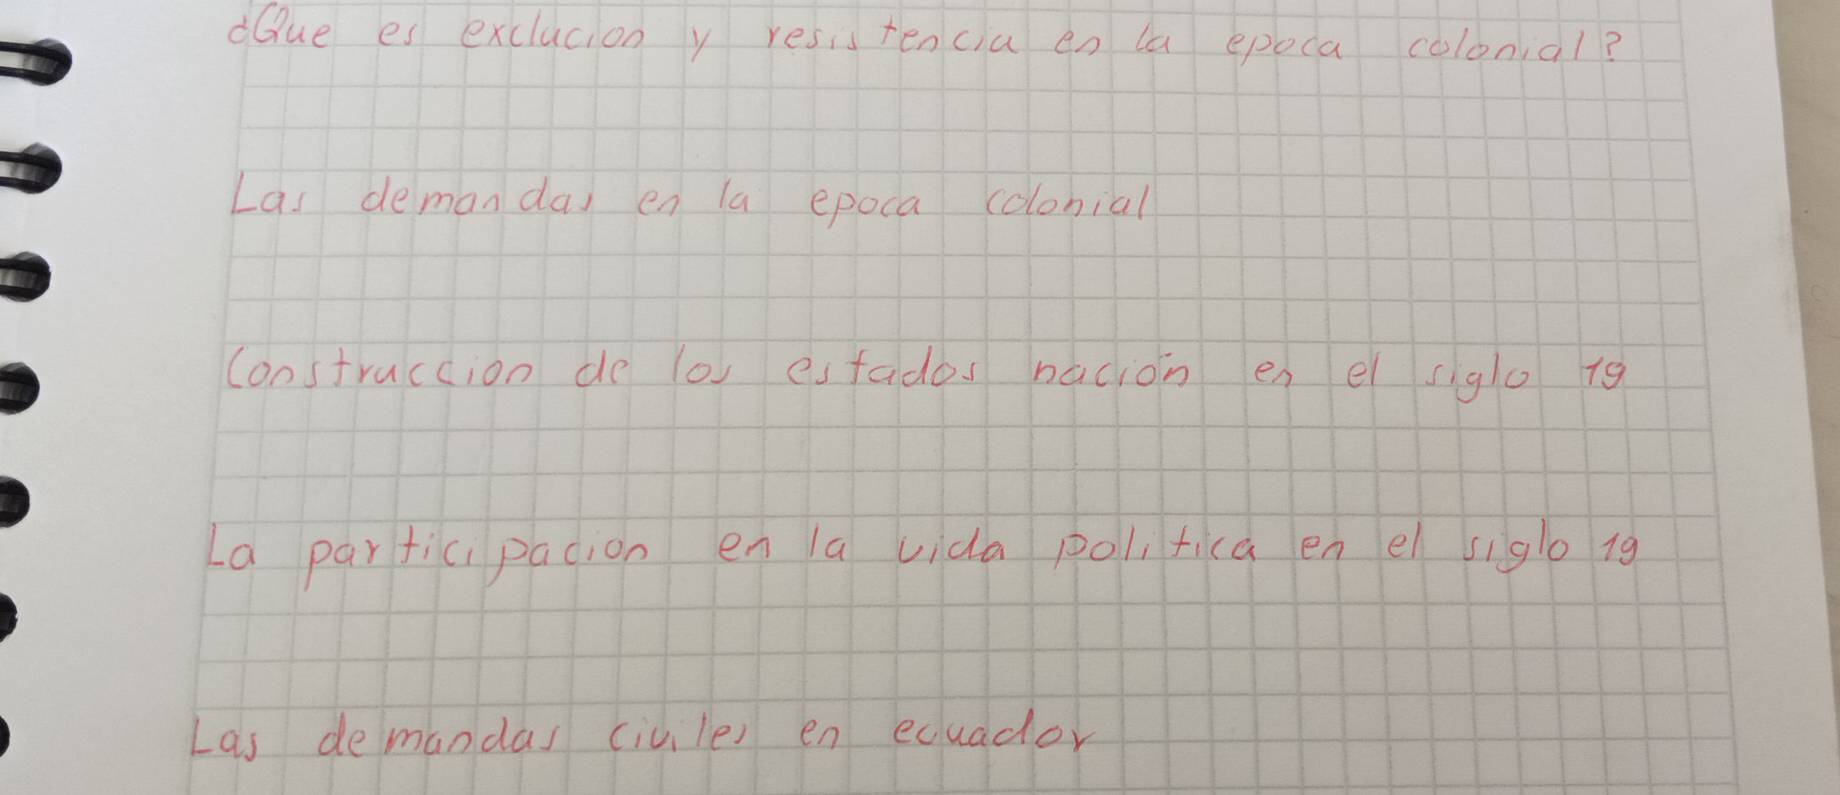 ¿Que es exclucion y resistencia en la epoca colonial?
Las demandas en la epoca colonial
Construccion de los estados nación en el siglo 19
La participacion en la vida politica en el siglo 19
Las demandas civiles en ecuador